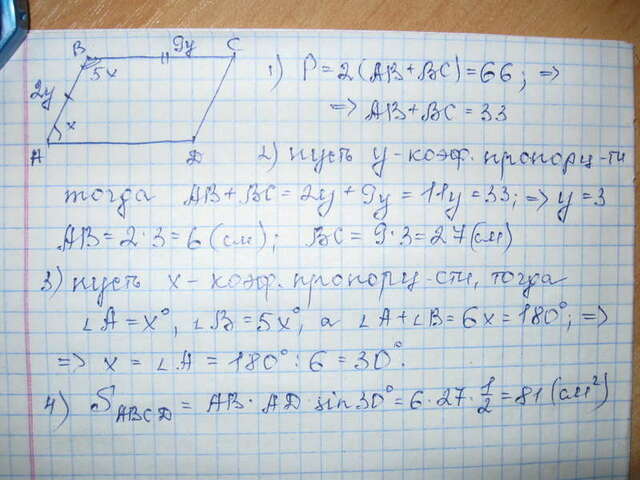 B 9y C
5x
2y
x
A D
1) P = 2(AB+BC)=66; =>
=> AB+BC = 33
2) пусть y-коэф. пропорц-ти
тогда AB+BC=2y+9y=11y=33; => y=3
AB=2·3=6(см); BC=9·3=27(см)
3) пусть x-коэф. пропорц-сти, тогда
∠A=x°, ∠B=5x°, а ∠A+∠B=6x=180°; =>
=> x = ∠A = 180°:6=30°.
4) S_ABCD = AB·AD·sin30°=6·27·1/2=81(см²)